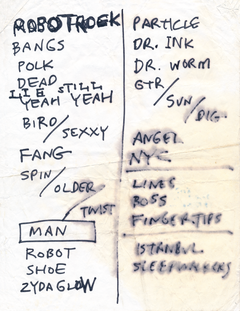 ROBOT ROCK
BANGS
POLK
DEAD
LIE STILL
YEAH YEAH
BIRD/SEXXY
FANG
SPIN/OLDER
TWIST
MAN
ROBOT
SHOE
ZYDAGLOW
PARTICLE
DR. INK
DR. WORM
GTR/SUN/DIG
ANGEL
NYC
LINES
ROSS
FINGERTIPS
ISTANBUL
SLEEPWALKERS